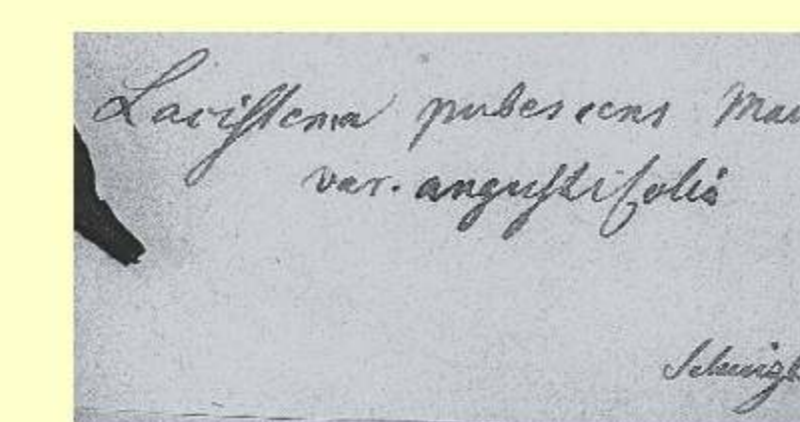 Lacistema pubescens Mar
var. angustifolia